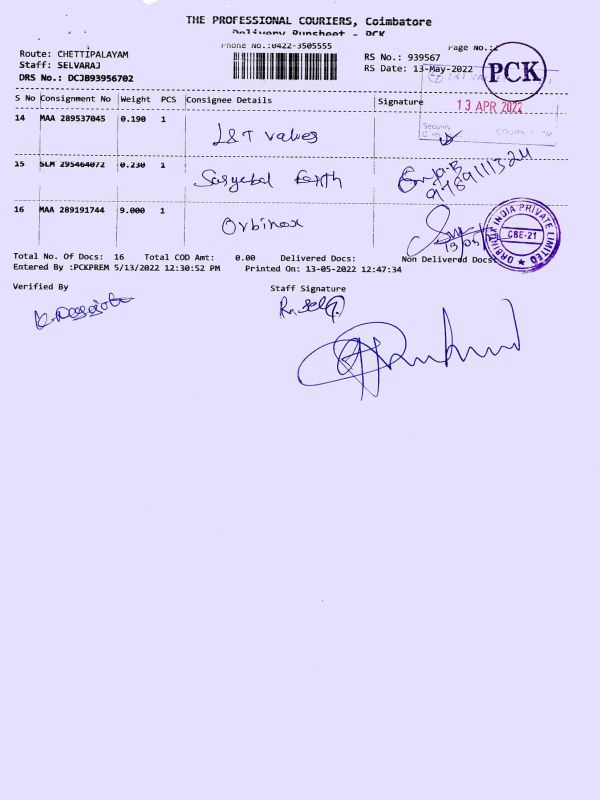 THE PROFESSIONAL COURIERS, Coimbatore
Delivery Runsheet - PCK
Phone No.:0422-3505555
Page No.:2
Route: CHETTIPALAYAM
RS No.: 939567
Staff: SELVARAJ
RS Date: 13-May-2022
DRS No.: DCJB93956702
PCK
S No Consignment No Weight PCS Consignee Details Signature
13 APR 2022
14 MAA 289537045 0.190 1 L&T valves
Security
15 SLM 295464072 0.230 1
9789111324
16 MAA 289191744 9.000 1 Orbinox
ORBINOX INDIA PRIVATE LIMITED
CBE-21
Total No. Of Docs: 16 Total COD Amt: 0.00 Delivered Docs: Non Delivered Docs:
Entered By :PCKPREM 5/13/2022 12:30:52 PM Printed On: 13-05-2022 12:47:34
Verified By Staff Signature